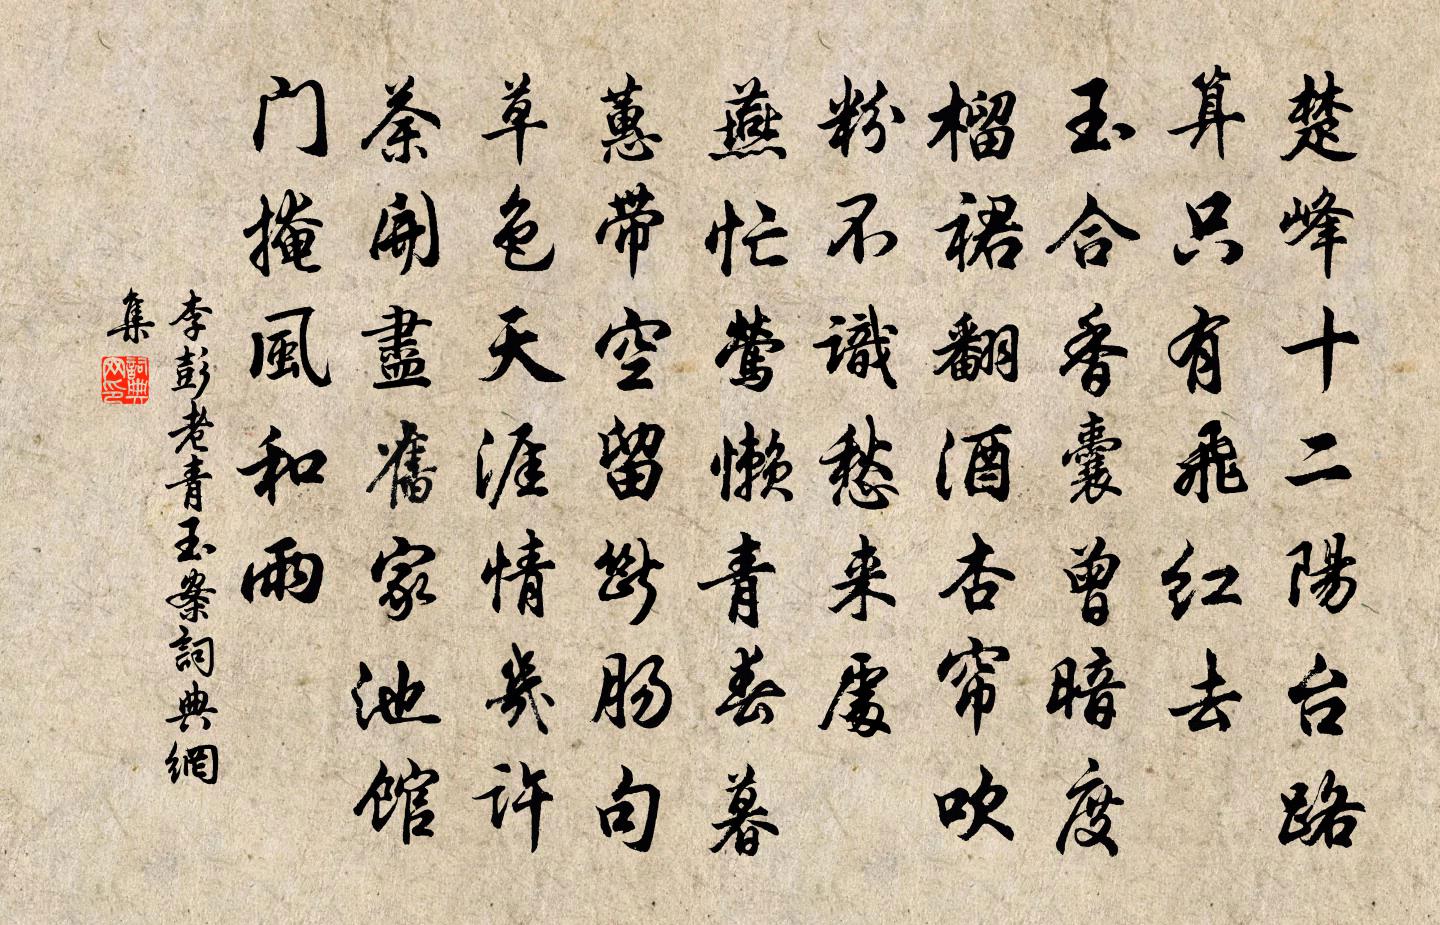 楚峰十二陽台路
算只有飛紅去
玉合香囊曾暗度
榴裙翻酒杏帘吹
粉不識愁来處
燕忙鶯懶青春暮
蕙帶空留斷腸句
草色天涯情幾許
荼開盡舊家池館
门掩風和雨
李彭老青玉案詞典網
集
詞典网印